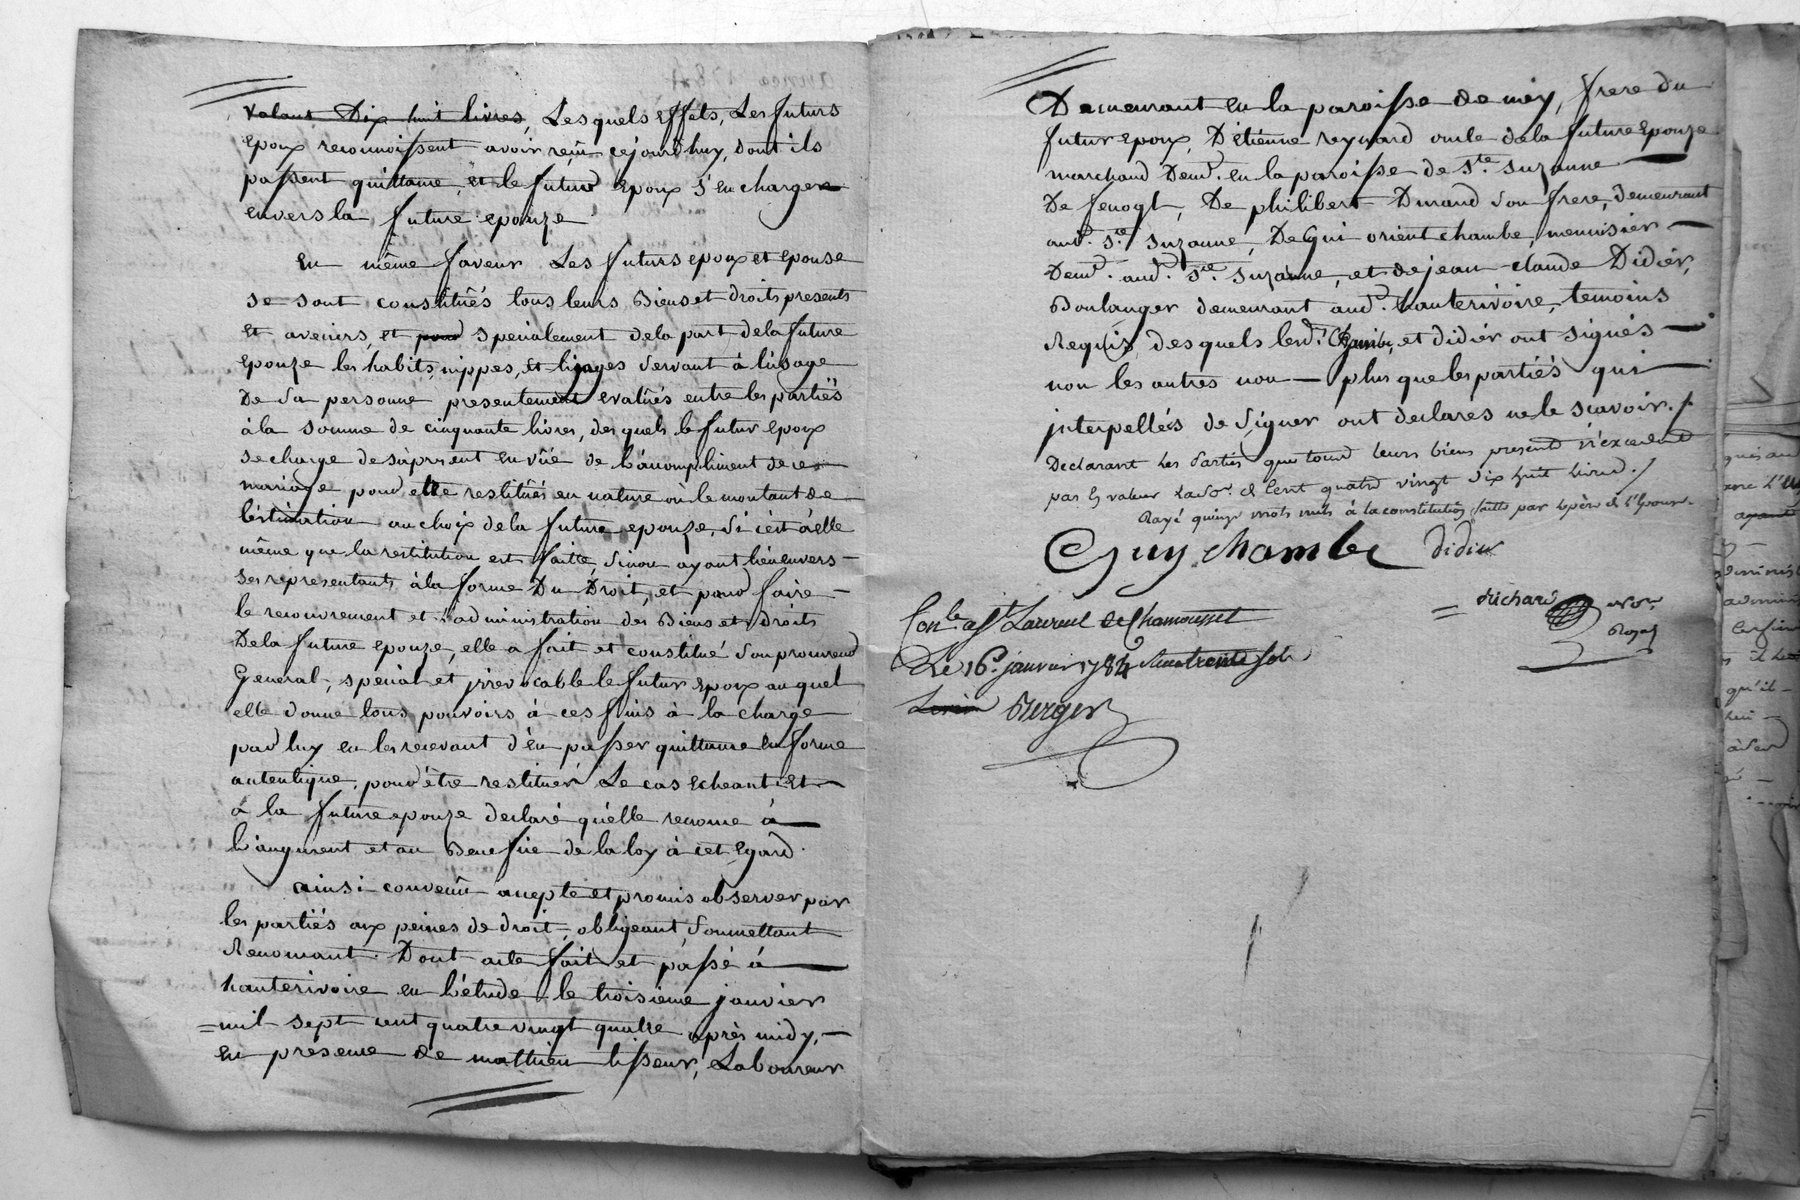 valant Dix huit livres, Lesquels effets, Les futurs
epoux reconnoissent avoir reçû cejourdhuy, dont ils
passent quittance, et le futur epoux s'en charge
envers la future epouze
en même faveur Les futurs epoux et epouse
se sont constitués tous leurs Biens et droits presents
et aveniers, et pour specialement dela part dela future
epouze les habits, nippes, et linges servant à l'usage
De sa personne presentement evalués entre les partiés
à la somme de cinquante livres, desquels le futur epoux
se charge desàpresent en vûe de l'acomplissement de ce
mariage pour etre restitués en nature où le montant de
l'estimation au choix de la future epouze, si c'est àelle
même que la restitution est faitte, sinon ayant lieu envers
ses representants à la forme Du Droit, et pour faire
le recouvrement et l'administration des Biens et droits
Dela future epouze, elle a fait et constitué son procureur
General, special et jrrevocable le futur epoux auquel
elle donne tous pouvoirs à ces fins à la charge
par luy en les recevant d'en passer quittance en forme
autentique, pour être restitués Le cas echeant et
à la future epouze declaré qu'elle renonce à
l'augment et au Benefice de la loy à cet egard.
ainsi convenû accepté et promis observer par
les partiés aux peines de droit, obligeant, soumettant
Renonçant. Dont acte fait et passé à
hauterivoire en l'étude le troisieme janvier
mil sept cent quatre vingt quatre après midy,
en présence de mathieu tisseur, Laboureur
Demeurant en la paroisse de , frere du
futur epoux, D'etienne reynard oncle dela future Epouze
marchand Demt. en la paroisse de Ste. Suzanne
De , De philibert Durand son frere, demeurant
aud. Ste. Suzanne, De Gui orient chambe, menuisier
Demt. aud. Ste. Suzanne, et de jean-claude Didier,
Boulanger demeurant aud. hauterivoire, temoins
Requis, desquels lesd. Chambe, et didier ont signés
non les autres non plus que les partiés qui
jnterpellés de signer ont declarés ne le scavoir./
Declarant les Parties que tous leurs biens present n'excedent
pas la valeur de Cent quatre vingt Dix huit livres./
Rayé quinze mots nuls à la constitution faitte par le père de l'Epouse.
Guy chambe Didier
Richard nore
Royal
Conlé a St Laurent de Chamousset
Le 16e. janvier 1784 Reçu trente sols
Berger